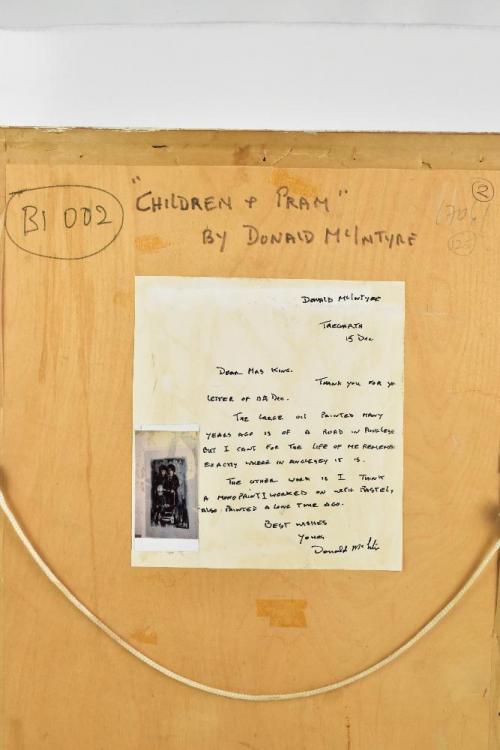 BI 002
"CHILDREN + PRAM"
BY DONALD McINTYRE
2
DONALD McINTYRE
TREGARTH
15 DEC
DEAR MRS KING.
THANK YOU FOR YO
LETTER OF DEC.
THE LARGE OIL PAINTED MANY
YEARS AGO IS OF A ROAD IN ANGLESE
BUT I CANT FOR THE LIFE OF ME REMEMB
EXACTLY WHERE IN ANGLESEY IT IS.
THE OTHER WORK IS I THINK
A MONOPRINT I WORKED ON WITH PASTEL,
ALSO PAINTED A LONG TIME AGO.
BEST WISHES
YOURS
Donald McIntyre